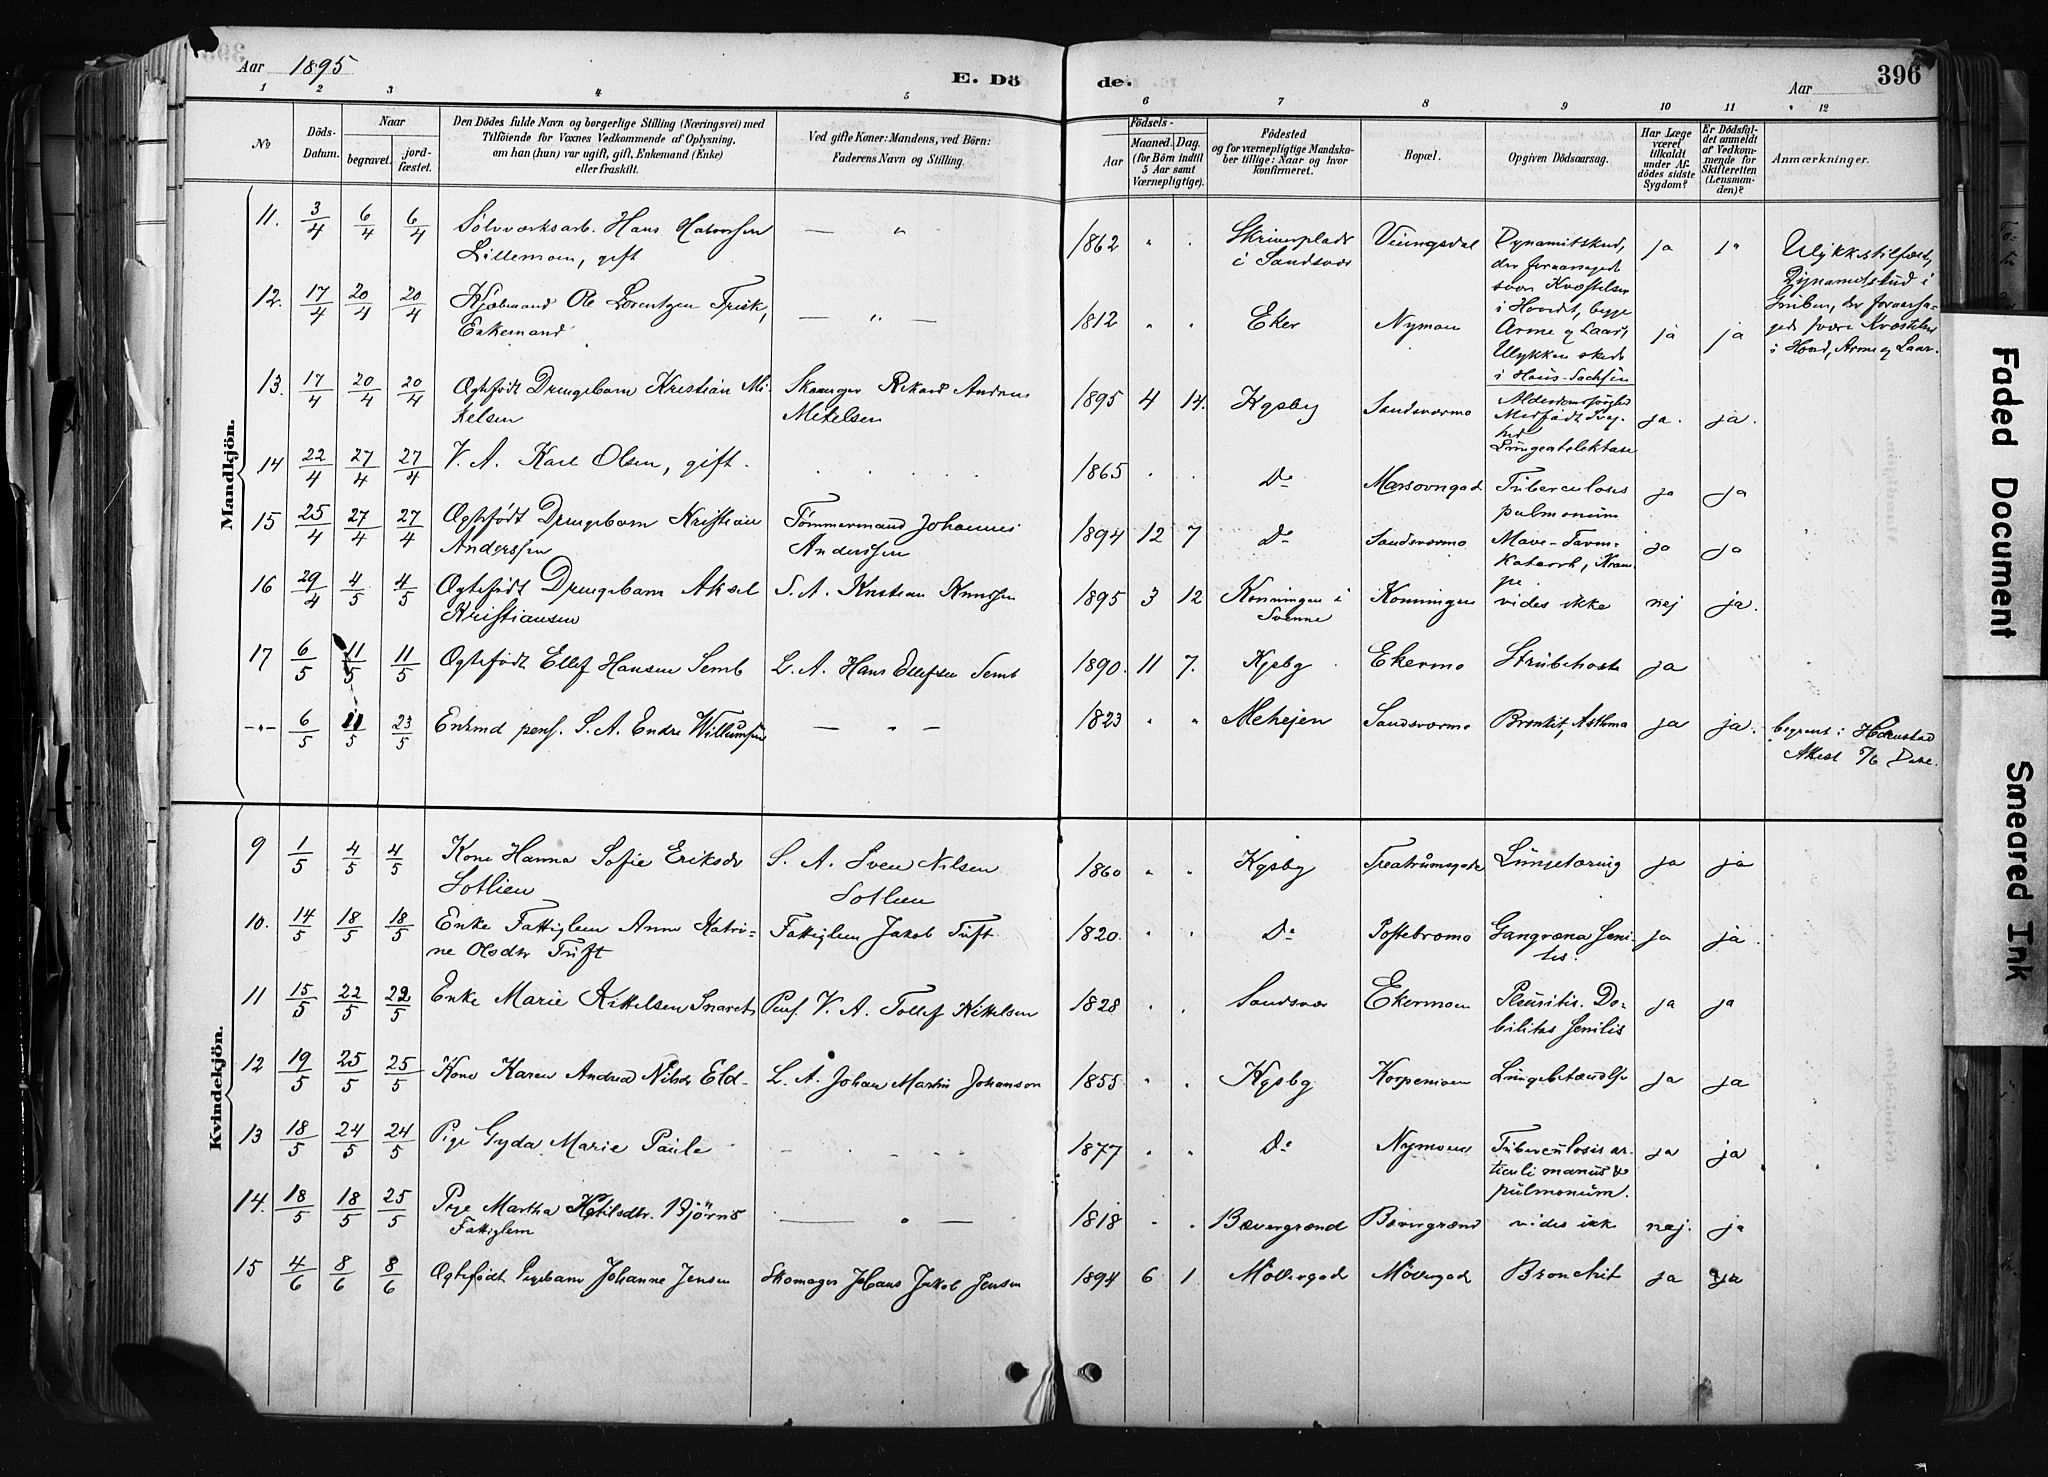 Aar 1895
E. Dö
de.
Aar
396
1 2 3 4 5 6 7 8 9 10 11 12
No
Döds-Datum.
Naar
begravet.
jord-fæstet.
Den Dödes fulde Navn og borgerlige Stilling (Næringsvei) med
Tilföiende for Voxnes Vedkommende af Oplysning,
om han (hun) var ugift, gift, Enkemand (Enke)
eller fraskilt.
Ved gifte Koner: Mandens, ved Börn:
Faderens Navn og Stilling.
Födsels-
Aar
Maaned. Dag.
(for Börn indtil
5 Aar samt
Værnepligtige).
Födested
og for værnepligtige Mandska-
ber tillige: Naar og hvor
konfirmeret.
Bopæl.
Opgiven Dödsaarsag.
Har Læge
været
tilkaldt
under Af-
dödes sidste
Sygdom?
Er Dödsfal-
det anmeldt
af Vedkom-
mende for
Skifteretten
(Lensman-
den)?
Anmærkninger.
Mandkjön.
11. 3/4 6/4 6/4 Sølvværksarb. Hans Halvorsen — " 1862 " " i Sandsvær Dynamitskud, ja ja Ulykkestilfælde,
Lillemoen, gift
Dynamitskud i
Gruben, der foraarsa-
i Hoved, Arme og Laar.
i Hovedet, begge
Arme og Laar,
Ulykken skede
i Haus-Sachsen
12. 17/4 20/4 20/4 Kjøbmand Ole Lorentzen Frisk, — " — 1812 " " Eker Nymoen ja ja
Enkemand
13. 17/4 20/4 20/4 Ægtefødt Drengebarn Kristian Mi- Skomager Rikard Andreas 1895 4 14. Kgsbg Sandsværmo ja. ja.
kelsen Mikelsen
Lungeatelektase
14 22/4 27/4 27/4 V. A. Karl Olsen, gift. 1865 Do Tuberculosis ja ja
pulmonum
15 25/4 27/4 27/4 Ægtefødt Drengebarn Kristian Tømmermand Johannes 1894 12 7 Do Sandsværmo Mave-Tarm- ja ja
Anderssen Anderssen Katarrh, Kram-
pe
16 29/4 4/5 4/5 Ægtefødt Drengebarn Aksel S. A. Kristian Knussen 1895 3 12 Konningen i Konningen vides ikke nej ja.
Kristiansen Svenne
17 6/5 11/5 11/5 Ægtefødt Ellef Hansen Semb L. A. Hans Ellefsen Semb 1890. 11 7. Kgsbg Ekermo Strubehoste ja
-"- 6/5 11/5 23/5 Enkmd pens. S. A. Endre Willumsen — " — 1823 " " Mehejen Sandsværmo Bronkit, Asthma ja ja. begravet i
Kvindekjön.
9 1/5 4/5 4/5 Kone Hanna Sofie Eriksdr S. A. Sven Nilsen 1860 " " Kgsbg Treatrumsgade Lungetæring ja ja
Sotlien Sotlien
10. 14/5 18/5 18/5 Enke Fattiglem Anne Katri- Fattiglem Jakob Tuft 1820. " " Do Postebromo Gangræna seni- ja ja.
ne Olsdtr Tuft lis.
11 15/5 22/5 22/5 Enke Marie Kittelsen Snaret Pens. V. A. Tollef Kittelsen 1828 " " Sandsvær Ekermoen Pleuritis. De- ja ja
bilitas senilis
12 19/5 25/5 25/5 Kone Karen Andrea Nilsdr Eld- L. A. Johan Martin Johanson 1855 " " Kgsbg Korpemoen Lungebetændelse ja ja
13 18/5 24/5 24/5 Pige Gyda Marie Paule 1877 " " Do Nymoen Tuberculosis ar- ja ja
ticuli manus &
pulmonum.
14. 18/5 18/5 25/5 Pige Martha Ketilsdtr. Bjørns — " — 1818 " " Bævergrænd Bævergrænd vides ikk nej. ja
Fattiglem
15 4/6 8/6 8/6 Ægtefødt Pigebarn Johanne Jensen Skomager Hans Jakob Jensen 1894 6 1. Møllergad Møllergad Bronchit ja ja
Faded Document
Smeared Ink